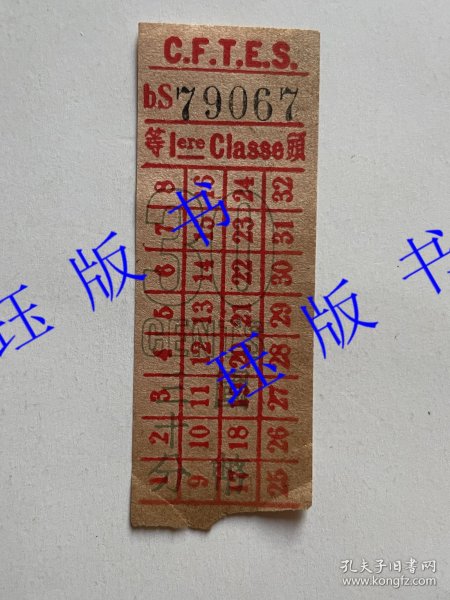 C.F.T.E.S.
bS 79067
等 1ere Classe 頭
8 16 24 32
7 15 23 31
6 14 22 30
5 13 21 29
4 12 20 28
3 11 19 27
2 10 18 26
1 9 17 25
珏版书
珏版书
孔夫子旧书网
www.kongfz.com